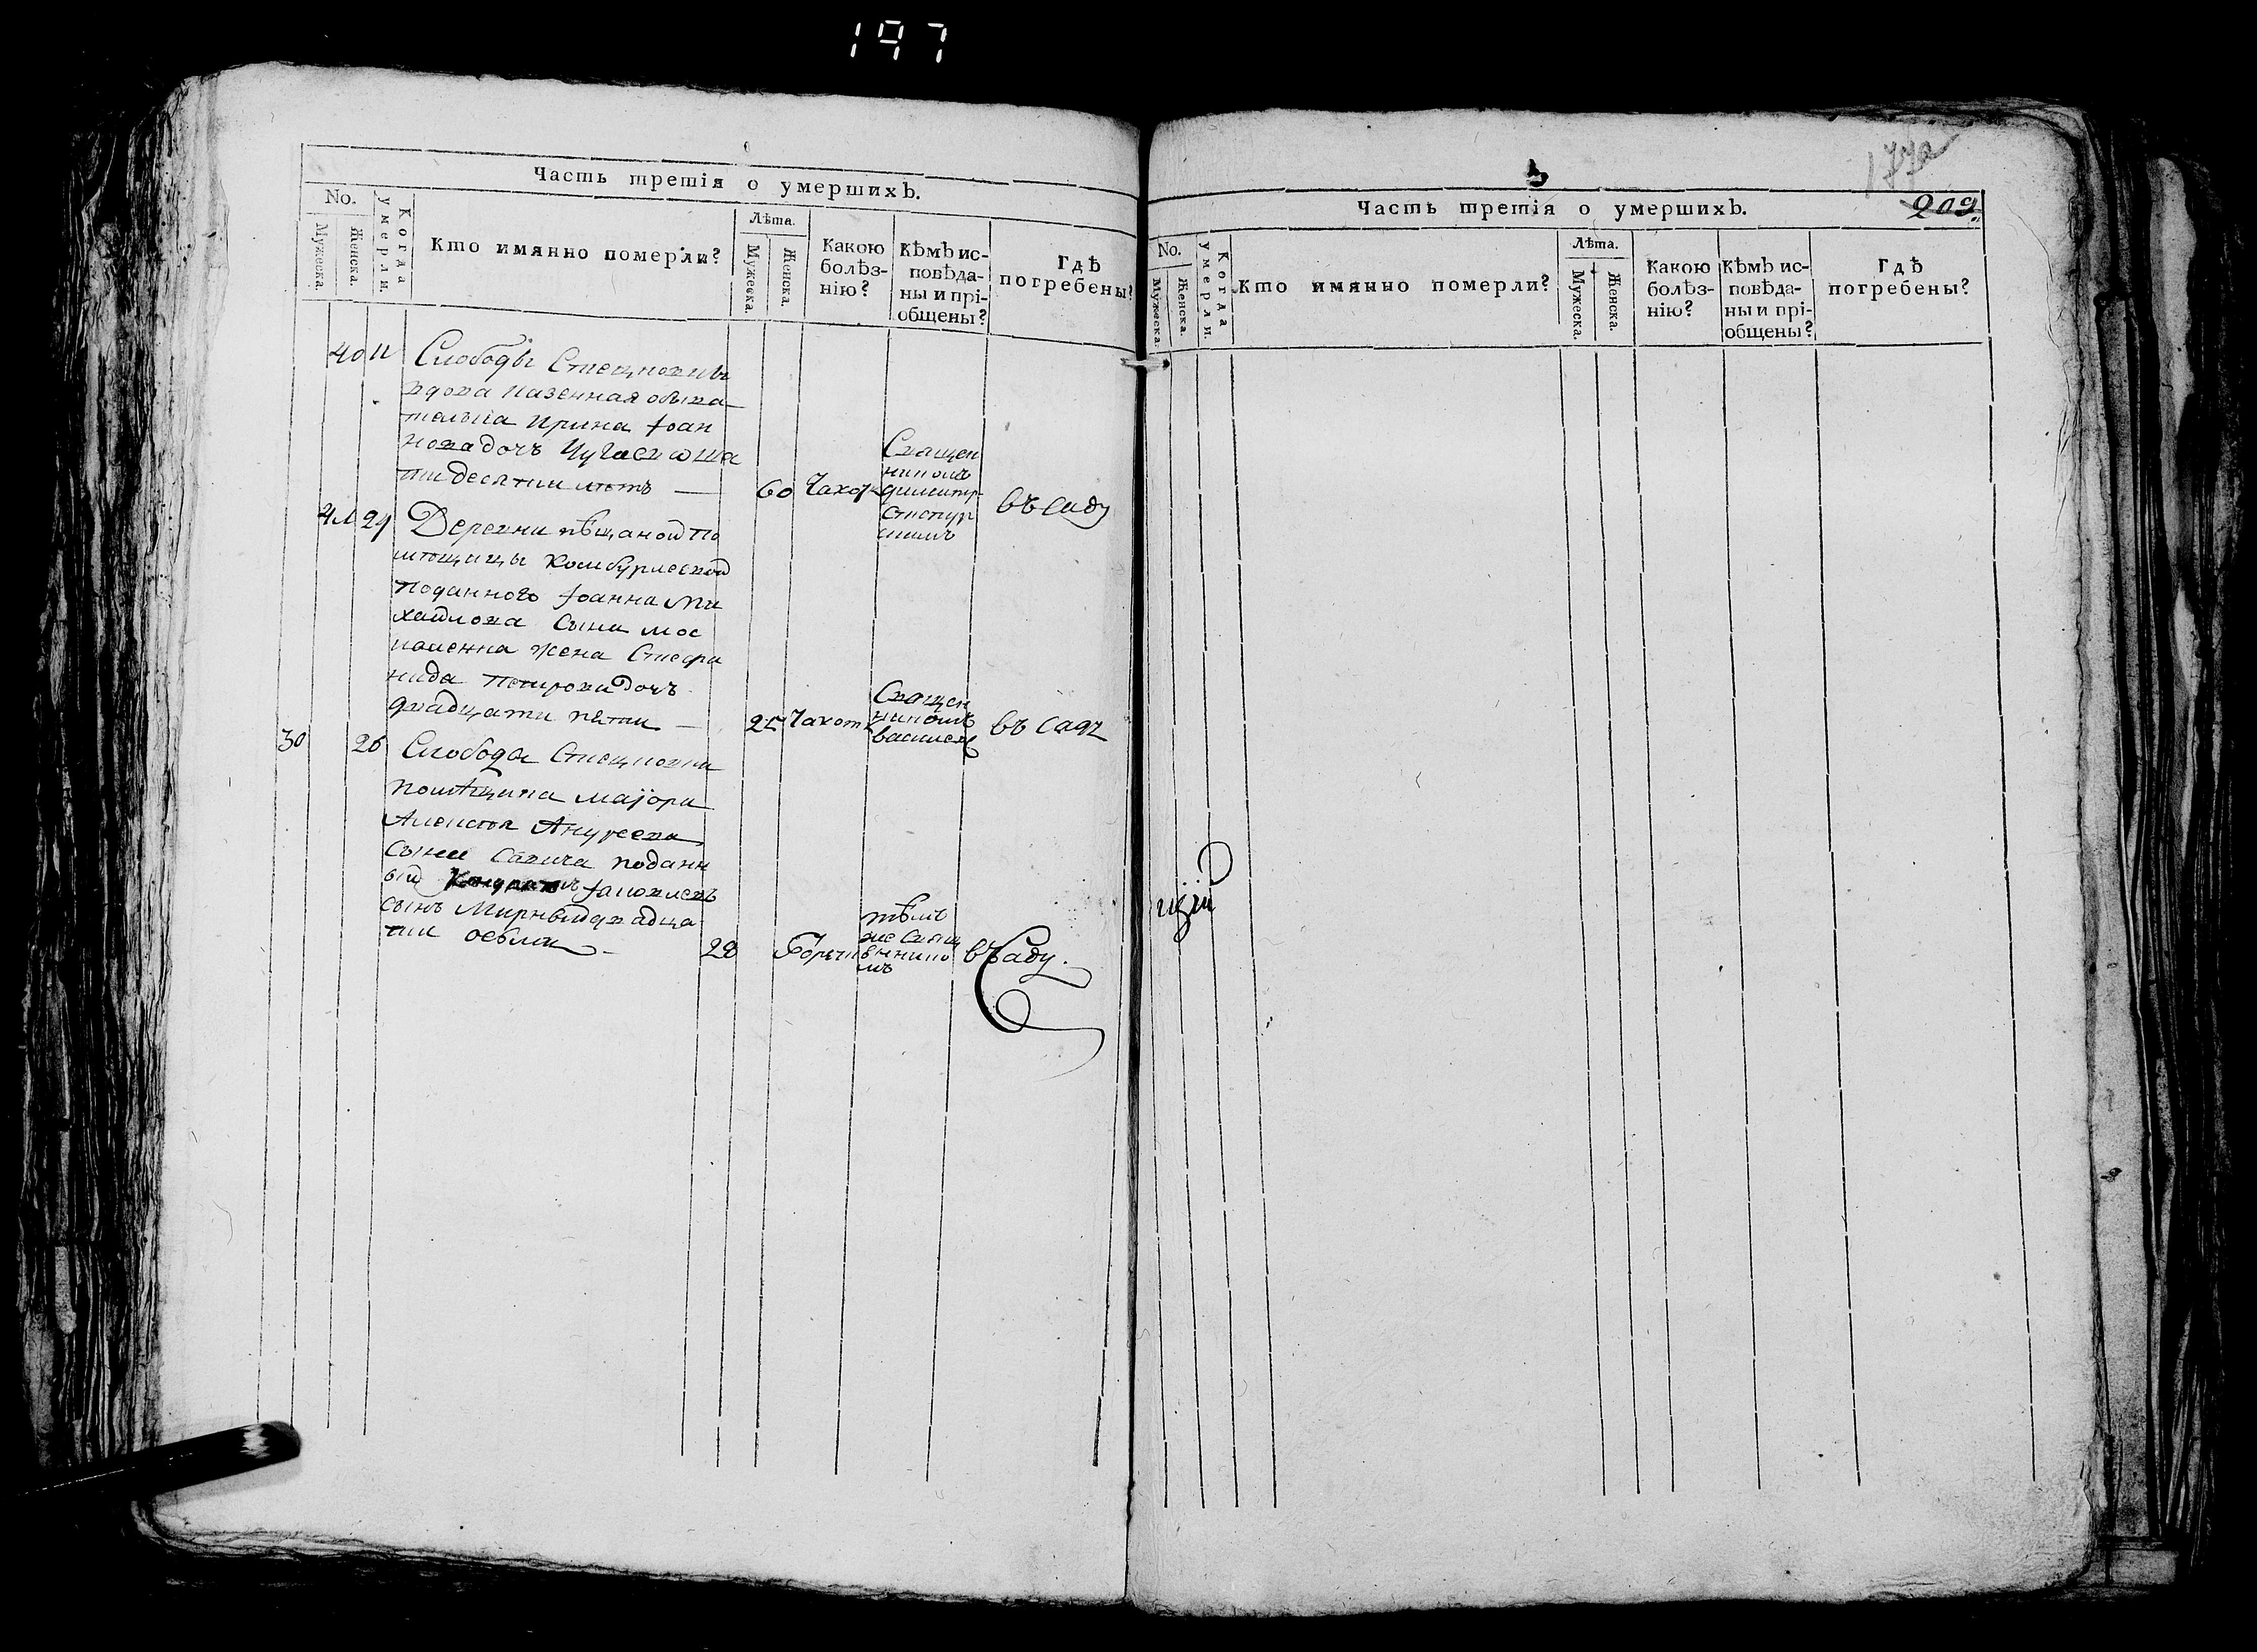 197
Часть третія о умершихЪ.
No.
Мужеска.
Женска.
Когда умерли.
Кто имянно померли?
Лѣта.
Мужеска.
Женска.
Какою болѣз-
нію?
КѣмЪ ис-
повѣда-
ны и прі-
общены?
ГдѢ
погребены?
40 11 Слободы
вдова казенная обыва
телька Ирина Іоан
нова дочъ
ши десятии лѣтъ — 60
Священ
никомъ
въ саду
41 24 Деревни пѣщаной по
мѣщицы Комбурлеевой
поданного Іоанна Ми
хаилова сына Мос
каленка жена Стефа
нида Петрова дочъ
двадцати пяти — 25 Чахот
Священ
никомъ
василем
въ саду
30 26 Слободы
помѣщика маіора
Алексѣя Андреева
сына Савича поданн
ый Іаковлевъ
сынъ двадца
ти осьми — 28
тѣмъ
же свящ
енико
мъ
въ Саду.
177а
209
Часть третія о умершихЪ.
No.
Мужеска.
Женска.
Когда умерли.
Кто имянно померли?
Лѣта.
Мужеска.
Женска.
Какою болѣз-
нію?
КѣмЪ ис-
повѣда-
ны и прі-
общены?
ГдѢ
погребены?